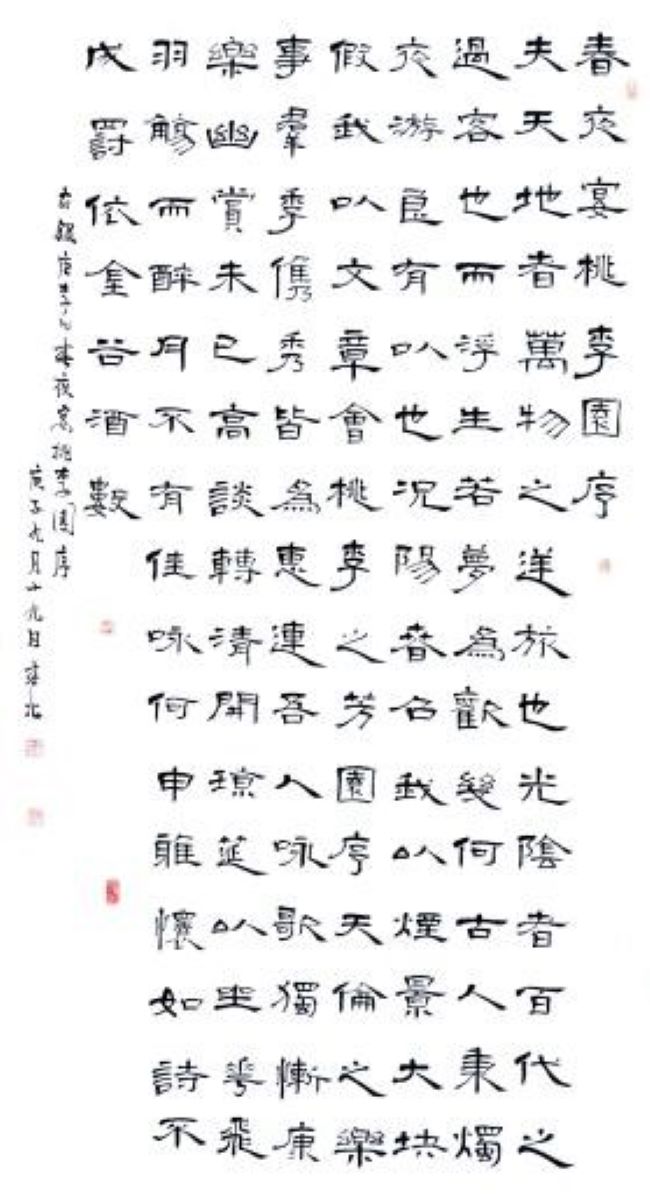 春夜宴桃李園序
夫天地者萬物之逆旅也光陰者百代之
過客也而浮生若夢為歡幾何古人秉燭
夜游良有以也況陽春召我以煙景大块
假我以文章會桃李之芳園序天倫之樂
事羣季儁秀皆為惠連吾人咏歌獨慚康
樂幽賞未已高談轉清開琼筵以坐花飛
羽觴而醉月不有佳咏何申雅懷如詩不
成罰依金谷酒數
右錄唐李白春夜宴桃李園序
庚子九月十九日